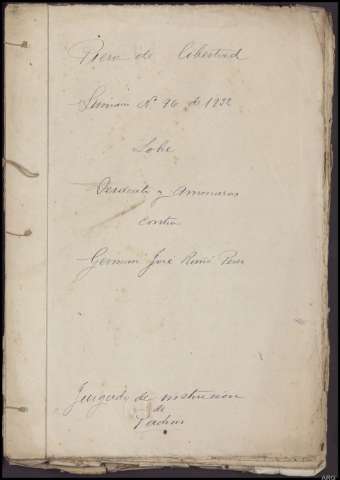 Pieza de libertad
Sumario Nº 96 de 1932
Sobre
Desacato y amenazas
contra
German José Romé Perez
Juzgado de instrucción
de
Padron
ARG